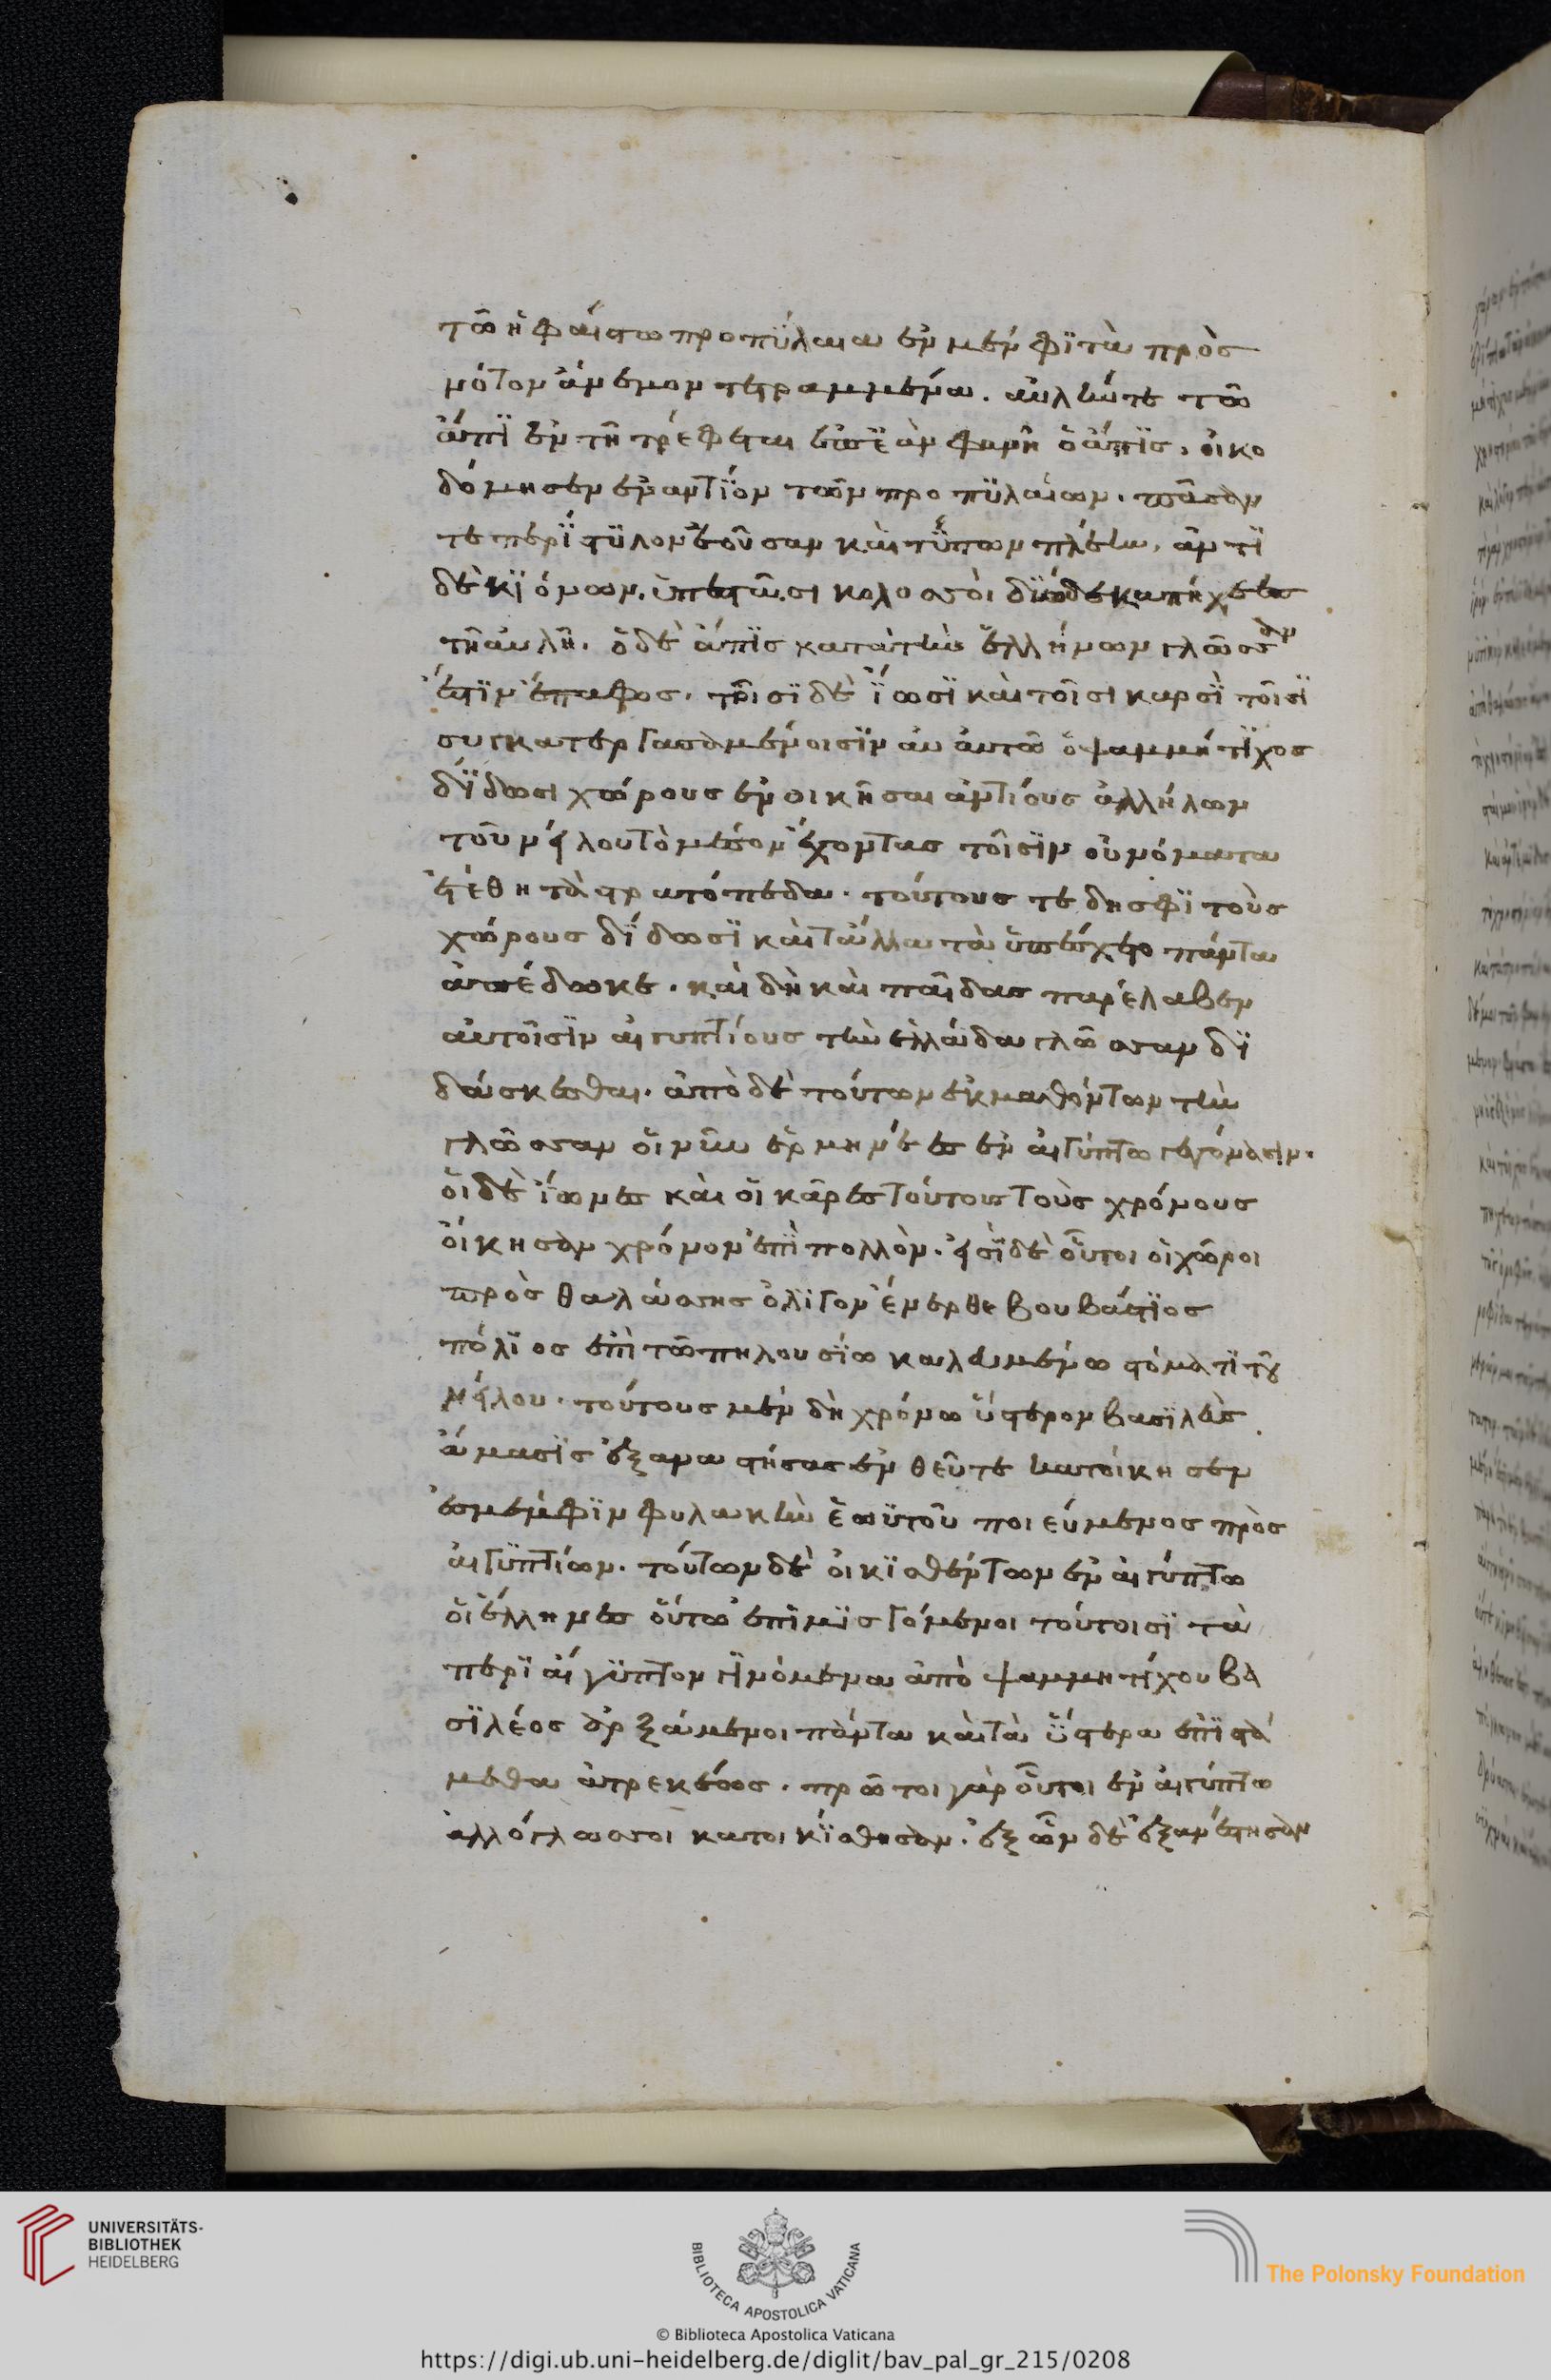 τῶ ἡφαίστω προπύλαια ἐν μέμφϊ τὰ πρὸς
νότον ἄνεμον τετραμμένα. αὐλήν τε τῶ
ἄπϊ ἐν τῆ τρέφεται ἐπεὰν φανῆ ὁ ἄπϊς, οἰκο
δόμησεν ἐναντίον τῶν προπϋλαίων. πᾶσαν
τε περίστϋλον ἐοῦσαν καὶ τύπων πλέην, ἀντὶ
δὲ κϊόνων, ὑπεστᾶσι κολοσσοὶ δϋωδεκαπήχεες
τῆ αὐλῆ. ὁ δὲ ἄπϊς κατὰ τὴν ἑλλήνων γλῶσσαν
ἐστϊν ἔπαφος. τοῖσϊ δὲ ἴωσϊ καὶ τοῖσι καρσὶ τοῖσϊ
συγκατεργασαμένοισϊν αὐτῶ ὁ ψαμμήτϊχος
δίδωσι χώρους ἐνοικῆσαι ἀντίους ἀλλήλων
τοῦ νείλου τὸ μέσον ἔχοντας τοῖσϊν οὐνόματα
ἐτέθη τὰ στρατόπεδα. τούτους τε δή σφϊ τοὺς
χώρους δίδωσϊ καὶ τἄλλα τὰ ὑπέσχετο πάντα
ἀπέδωκε. καὶ δὴ καὶ παῖδας παρέλαβεν
αὐτοῖσϊν αἰγυπτίους τὴν ἑλλάδα γλῶσσαν δϊ
δάσκεσθαι. ἀπὸ δὲ τούτων ἐκμαθόντων τὴν
γλῶσσαν οἱ νῦν ἑρμηνέες ἐν αἰγύπτω γεγόνασιν.
οἱ δὲ ἴωνες καὶ οἱ κᾶρες τούτους τοὺς χρόνους
οἴκησαν χρόνον ἐπὶ πολλὸν. εἰσὶ δὲ οὗτοι οἱ χῶροι
πρὸς θαλάσσης ὀλίγον ἔνερθε βουβάστϊος
πόλϊος ἐπὶ τῶ πηλουσίω καλευμένω στόματϊ τοῦ
νείλου. τούτους μὲν δὴ χρόνω ὕστερον βασϊλεὺς
ἄμασϊς ἐξαναστήσας ἐνθεῦτε κατοίκησεν
ἐς μέμφϊν φυλακὴν ἑωϋτοῦ ποιεύμενος πρὸς
αἰγϋπτίων. τούτων δὲ οἰκϊσθέντων ἐν αἰγύπτω
οἱ ἕλληνες οὕτω ἐπιμϊσγόμενοι τούτοισϊ τὰ
περὶ αἴγϋπτον γϊνόμενα ἀπὸ ψαμμητίχου βα
σϊλέος ἀρξάμενοι πάντα καὶ τὰ ὕστερα ἐπϊστά
μεθα ἀτρεκέως. πρῶτοι γὰρ οὗτοι ἐν αἰγύπτω
ἀλλόγλωσσοι κατοικίσθησαν. ἐξ ὧν δὲ ἐξανέστησαν
UNIVERSITÄTS-
BIBLIOTHEK
HEIDELBERG
BIBLIOTECA APOSTOLICA VATICANA
The Polonsky Foundation
© Biblioteca Apostolica Vaticana
https://digi.ub.uni-heidelberg.de/diglit/bav_pal_gr_215/0208